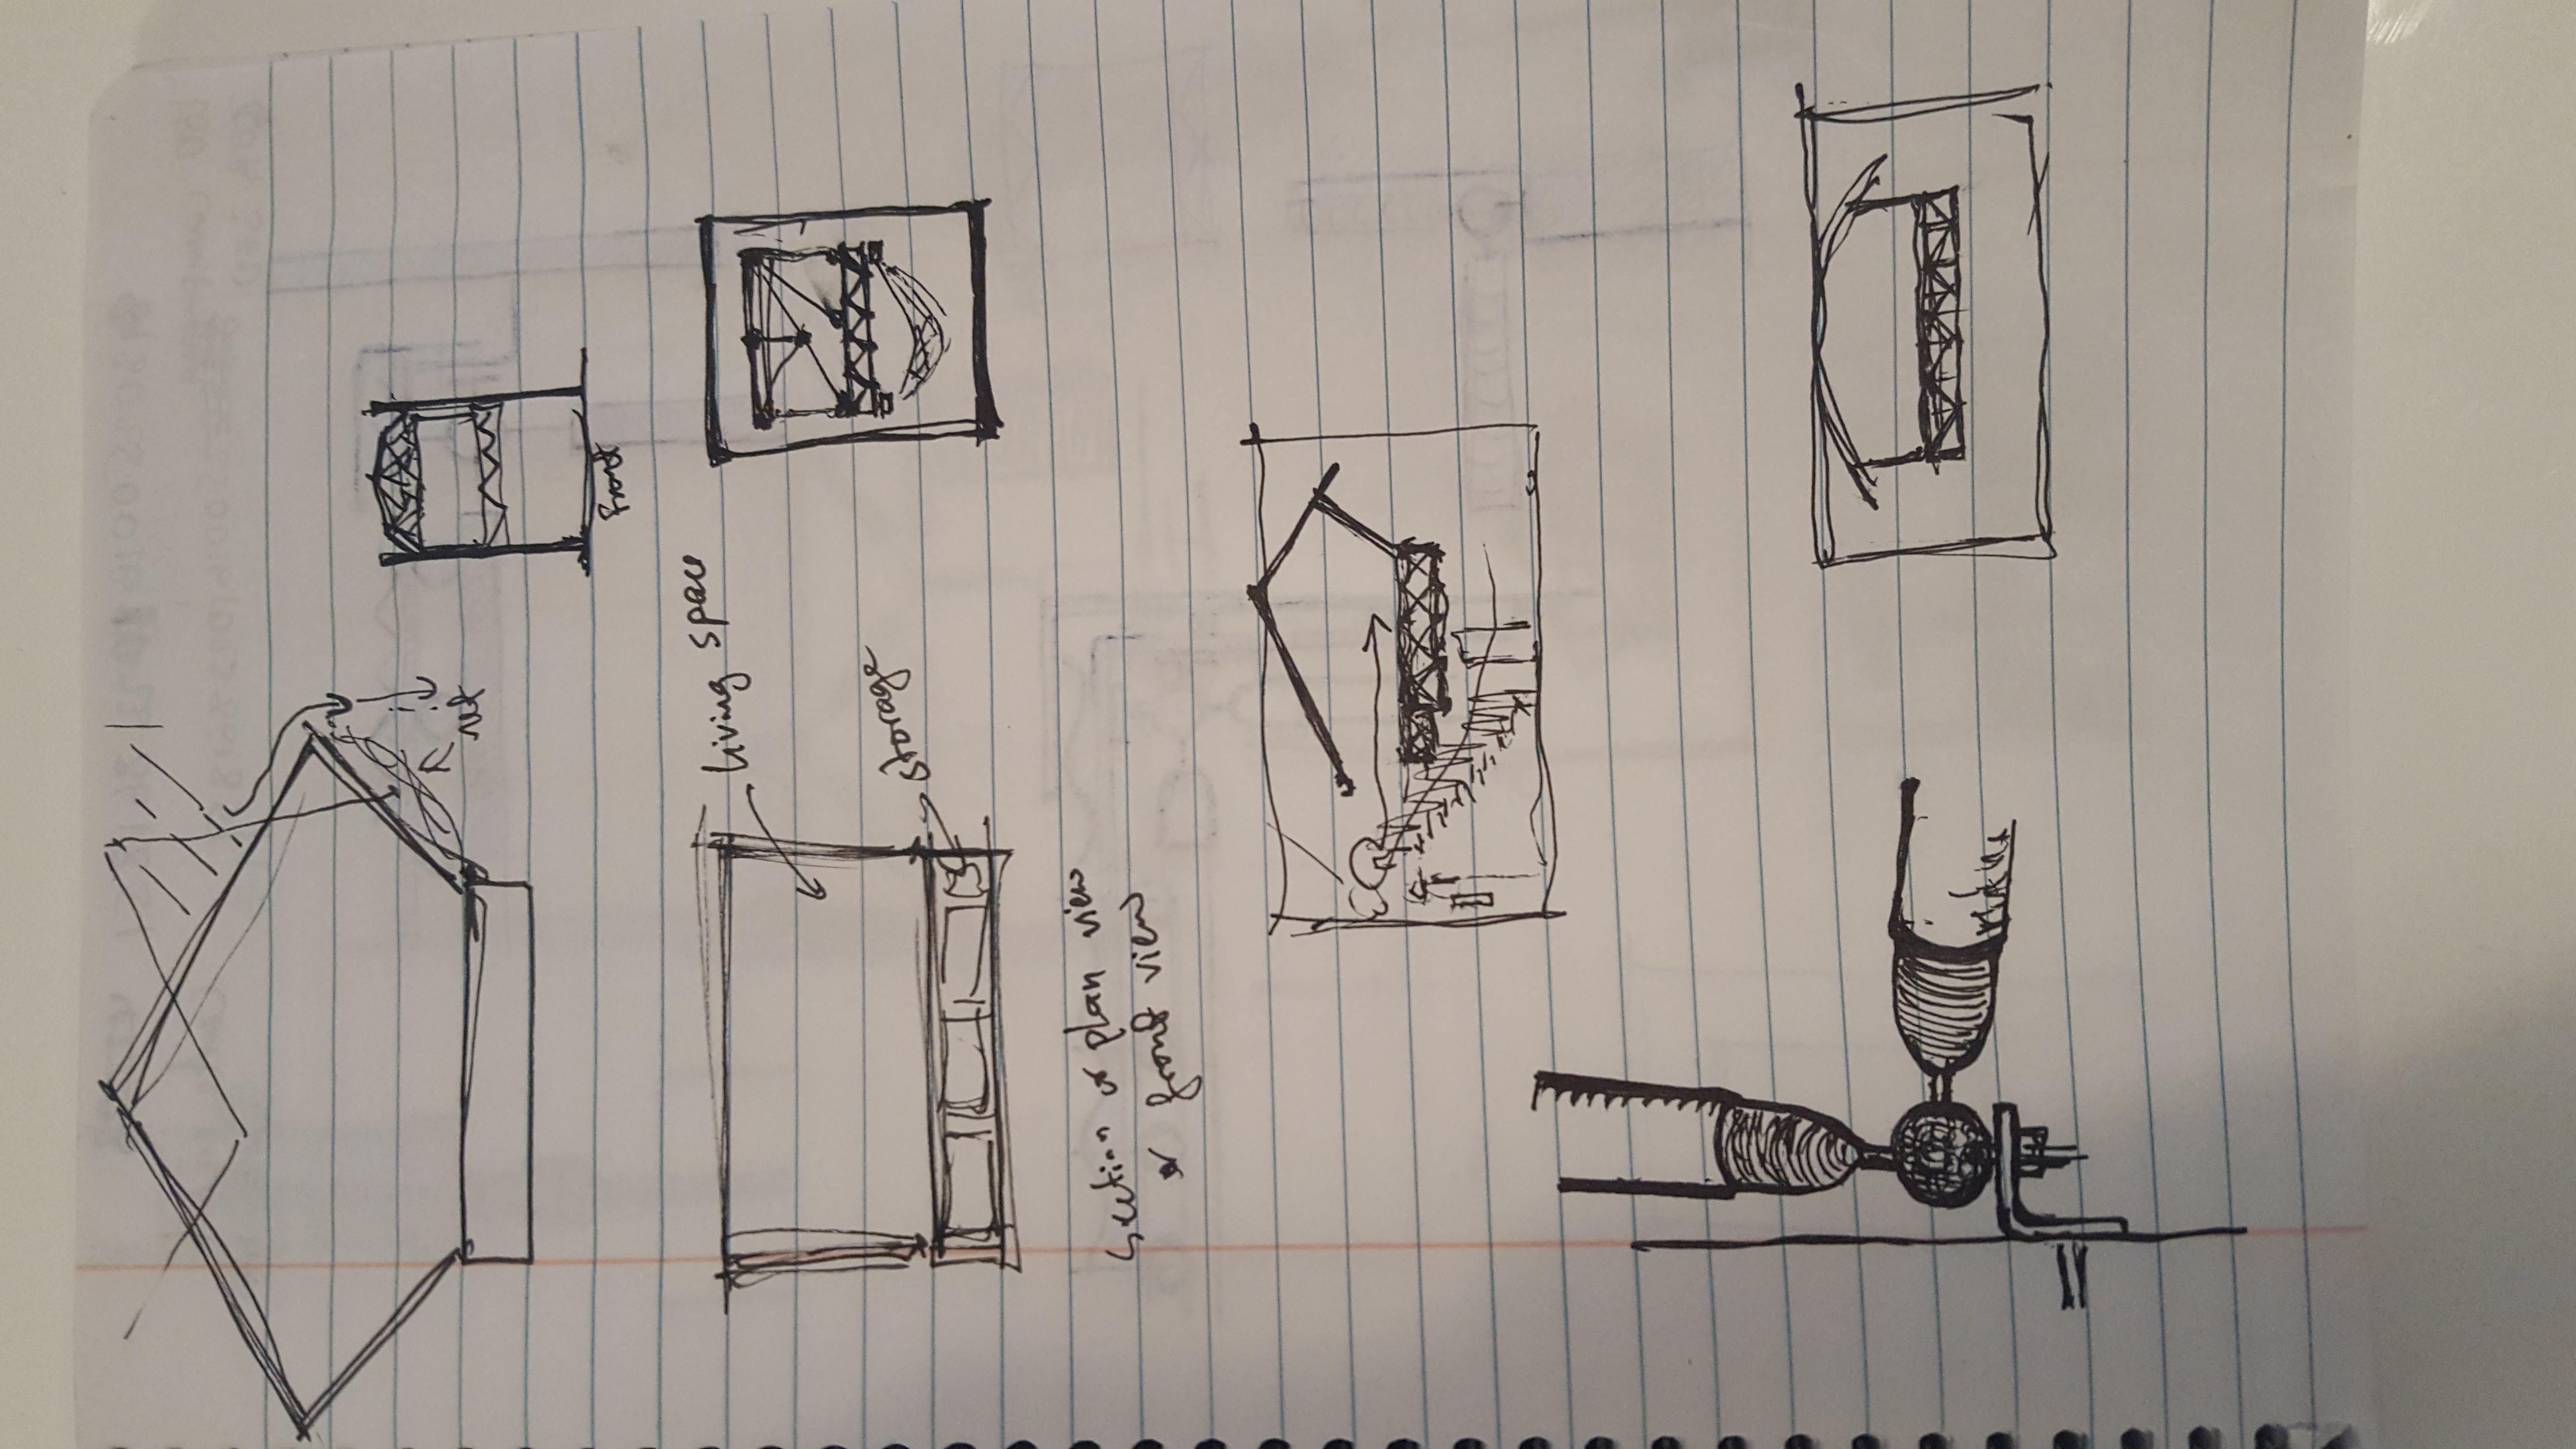 net
front
living space
storage
Section or plan view
or front view